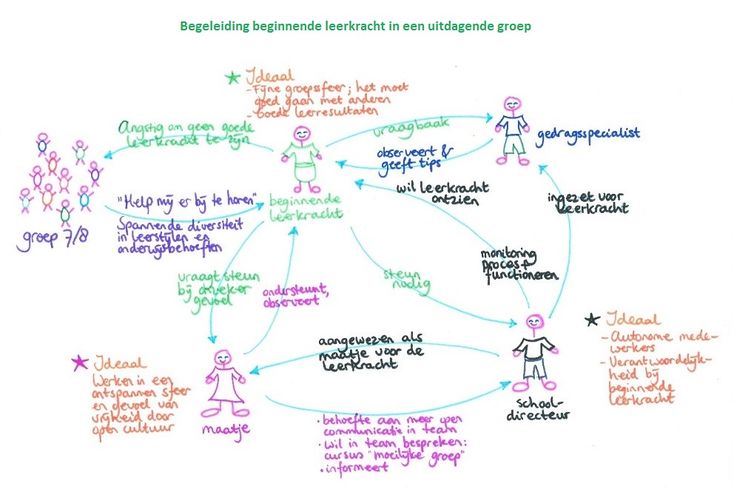 Begeleiding beginnende leerkracht in een uitdagende groep
Ideaal
- Fijne groepssfeer; het moet
goed gaan met anderen
- Goede leerresultaten
Angstig om geen goede
leerkracht te zijn
vraagbaak
gedragsspecialist
observeert &
geeft tips
wil leerkracht
ontzien
ingezet voor
leerkracht
"Help mij er bij te horen"
beginnende
leerkracht
groep 7/8
Spannende diversiteit
in leerstijlen en
onderwijsbehoeften
monitoring
proces +
functioneren
vraagt steun
bij onzeker
gevoel
ondersteunt,
observeert
steun
nodig
Ideaal
- Autonome mede-
werkers
- Verantwoordelijk-
heid bij
beginnende
leerkracht
aangewezen als
maatje voor de
leerkracht
Ideaal
Werken in een
ontspannen sfeer
en gevoel van
vrijheid door
open cultuur
maatje
school-
directeur
• behoefte aan meer open
communicatie in team
• wil in team bespreken:
cursus "moeilijke groep"
• informeert